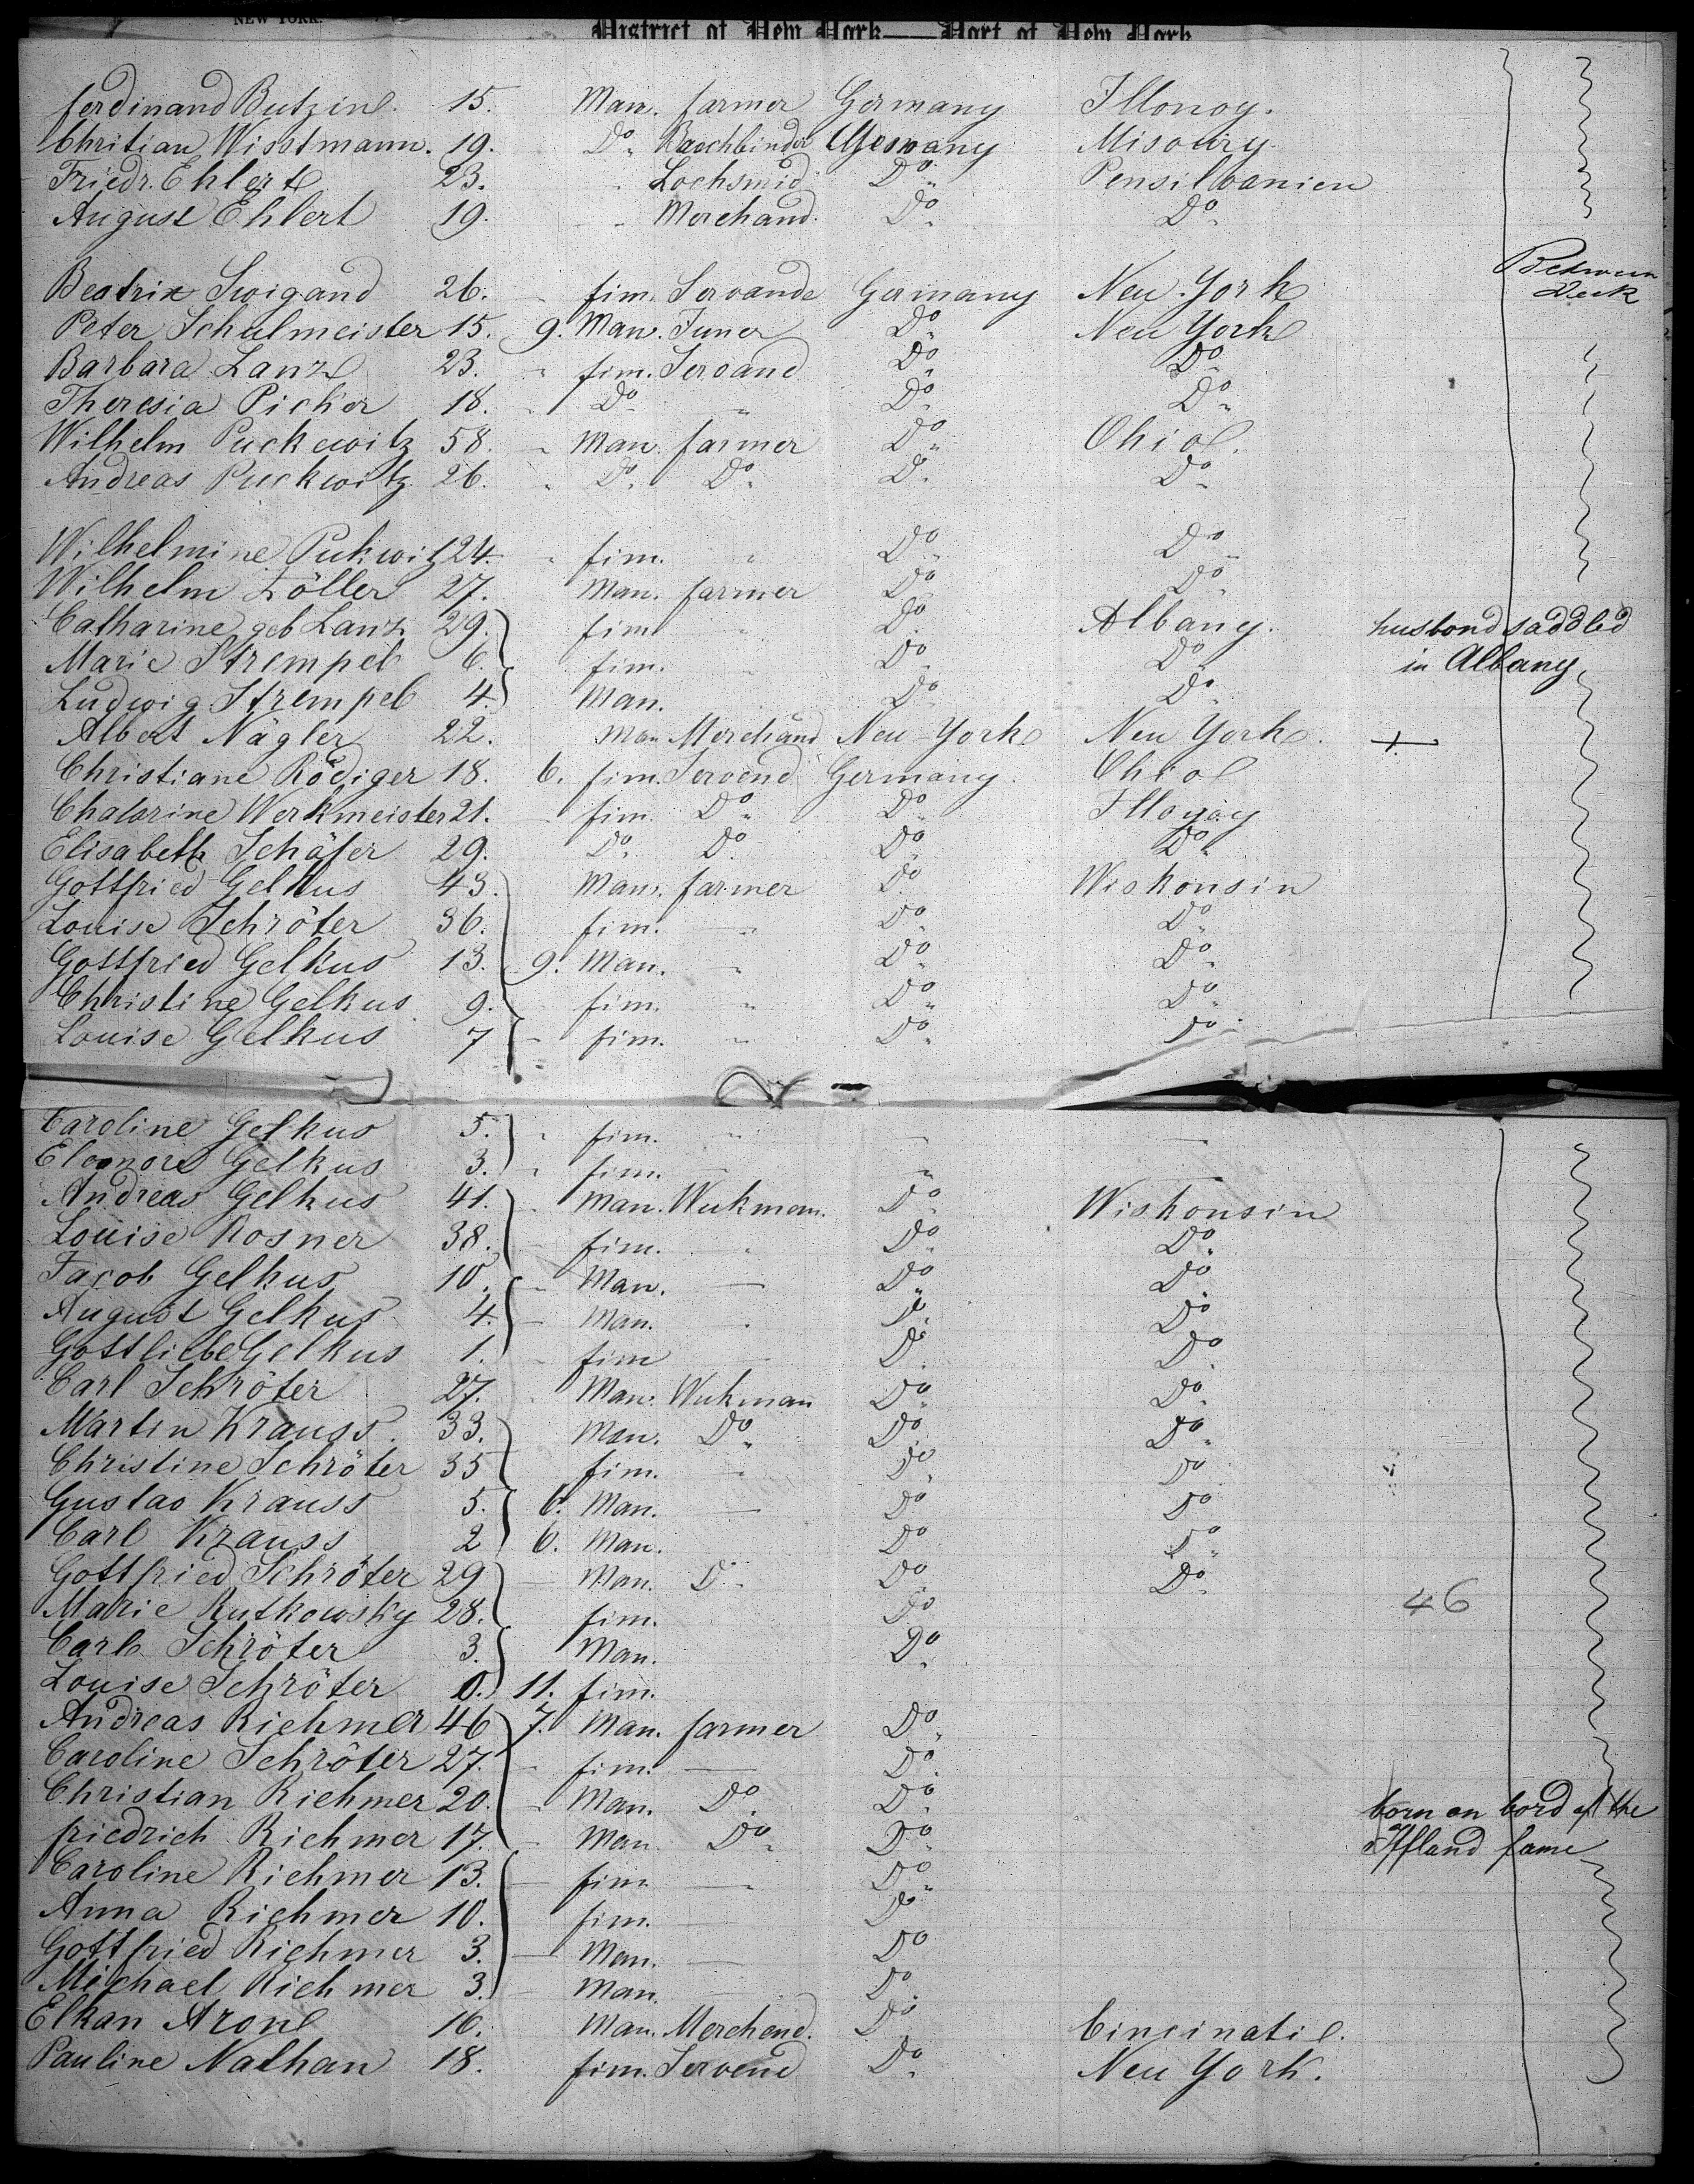 NEW YORK.
District of New York — Port of New York
ferdinand Butzine. 15. Man. farmer Germany Illonoy.
Chritian Wisstmann. 19. Do. Germany Misoury
Friedr. Ehlert 23. Lochsmid Do. Pensilvanien
August Ehlert 19. Merchand. Do. Do.
Between Deck
Beatrix Swigand 26. fim. Servande Germany New York
Peter Schulmeister 15. 9. Man. Juner Do. New York
Barbara Lanz 23. fim. Servand Do. Do.
Theresia Picker 18. Do. " Do. Do.
Wilhelm Puckewitz 58. Man. farmer Do. Ohio.
Andreas Puckwitz 26. Do. Do. Do. Do.
Wilhelmine Pukwitz 24. fim. " Do. Do.
Wilhelm Zöller 27. Man. farmer Do. Do.
Catharine geb Lanz 29. fim " Do. Albany. husbond saddled
Marie Strempel 6. fim. Do. Do. in Albany
Ludwig Strempel 4. Man. Do. Do.
Albert Nägler 22. Man Merchand New-York New York.
Christiane Rödiger 18. 6. fim. Servend Germany. Ohio
Chatarine Werkmeister 21. fim. Do. Do. Illonoy
Elisabeth Schäfer 29. Do. Do. Do. Do.
Gottfried Gelkus 43. Man. farmer Do. Wiskonsin
Louise Schröter 36. fim. " Do. Do.
Gottfried Gelkus 13. 9. Man. " Do. Do.
Christine Gelkus 9. fim. " Do. Do.
Louise Gelkus 7 fim. " Do. Do.
Caroline Gelkus 5. " fim. "
Eleonore Gelkus 3. " fim. "
Andreas Gelkus 41. Man. Wukman. Do. Wiskonsin
Louise Rosner 38. fim. " Do. Do.
Jacob Gelkus 10. Man. Do. Do.
August Gelkus 4. Man. Do. Do.
Gottliebe Gelkus 1. fim Do. Do.
Carl Schröter 27. Man. Wukman Do. Do.
Martin Krauss. 33. Man. Do. Do. Do.
Christine Schröter 35 fim. Do. Do.
Gustav Krauss 5. 6. Man. Do Do
Carl Krauss 2 6. Man. Do Do.
Gottfried Schröter 29 Man. D. Do. Do.
Marie Rutkowsky 28. fim. Do 46
Carl Schröter 3. Man. Do.
Louise Schröter 0. 11. fim.
Andreas Riehmer 46 7. Man. farmer Do.
Caroline Schröter 27. fim. Do.
Christian Riehmer 20. Man. Do. Do. born on bord of the
friedrich Riehmer 17. Man Do. Do. Iffland fame
Caroline Riehmer 13. fim Do.
Anna Riehmer 10. fim. Do
Gottfried Riehmer 3. Man. Do
Michael Riehmer 3. Man. Do.
Elkan Arone 16. Man. Merchend. Do. Cincinatie.
Pauline Nathan 18. fim. Servend Do. New York.